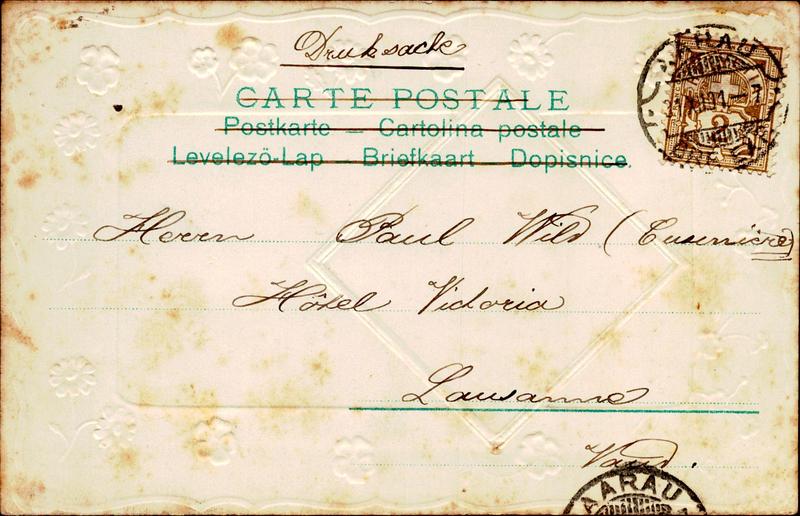 Druksache
CARTE POSTALE
Postkarte – Cartolina postale
Levelezö-Lap – Briefkaart – Dopisnice.
Herrn Paul Wild
Hôtel Victoria
Lausanne
Vaud.
AARAU
AARAU
2